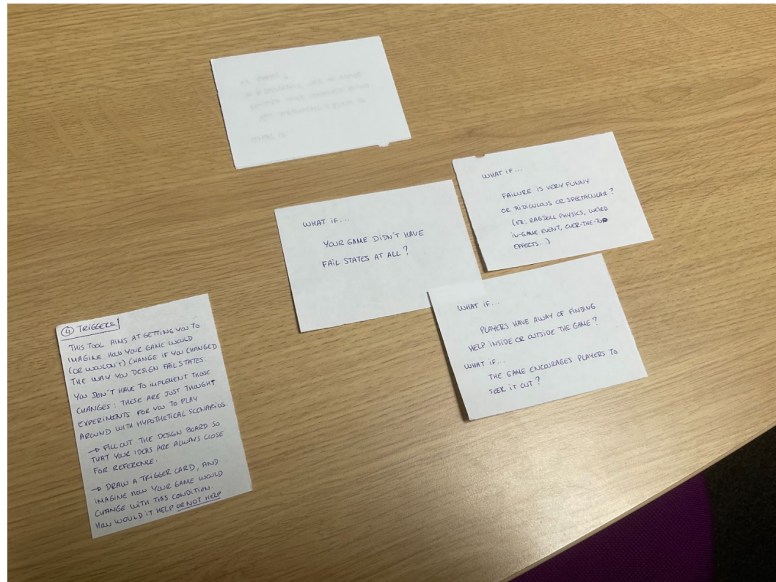 WHAT IF...
YOUR GAME DIDN'T HAVE
FAIL STATES AT ALL?
WHAT IF...
FAILURE IS VERY FUNNY
OR RIDICULOUS OR SPECTACULAR?
(EX: RAGDOLL PHYSICS, WEIRD
IN-GAME EVENT, OVER-THE-TOP
EFFECTS...)
WHAT IF...
PLAYERS HAVE A WAY OF FINDING
HELP INSIDE OR OUTSIDE THE GAME?
WHAT IF...
THE GAME ENCOURAGES PLAYERS TO
SEEK IT OUT?
④ TRIGGERS
THIS TOOL AIMS AT GETTING YOU TO
IMAGINE HOW YOUR GAME WOULD
(OR WOULDN'T) CHANGE IF YOU CHANGED
THE WAY YOU DESIGN FAIL STATES.
YOU DON'T HAVE TO IMPLEMENT THOSE
CHANGES: THESE ARE JUST THOUGHT
EXPERIMENTS FOR YOU TO PLAY
AROUND WITH HYPOTHETICAL SCENARIOS.
→ FILL OUT THE DESIGN BOARD SO
THAT YOUR IDEAS ARE ALWAYS CLOSE
FOR REFERENCE.
→ DRAW A TRIGGER CARD, AND
IMAGINE HOW YOUR GAME WOULD
CHANGE WITH THIS CONDITION.
HOW WOULD IT HELP OR NOT HELP